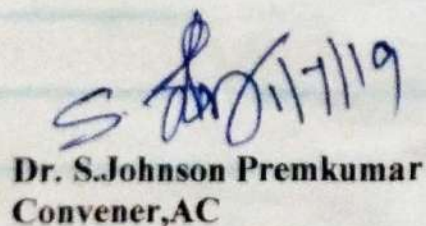 S. 1/7/19
Dr. S.Johnson Premkumar
Convener,AC